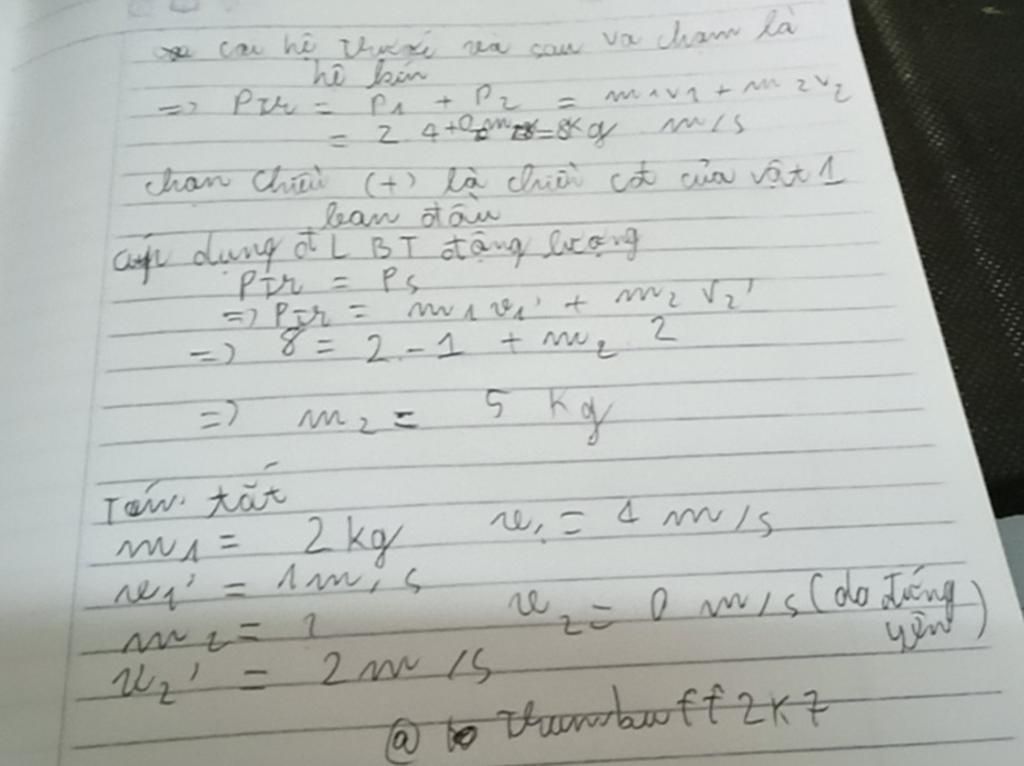 coi hệ trước và sau va chạm là
hệ kín
=> Ptr = P1 + P2 = m1v1 + m2v2
= 2.4+0.m2=8kg m/s
chọn chiều (+) là chiều cđ của vật 1
ban đầu
áp dụng đLBT động lượng
Ptr = Ps
=> Ptr = m1v1' + m2v2'
=> 8 = 2.-1 + m2.2
=> m2 = 5 kg
Tóm tắt
m1 = 2kg v1 = 4 m/s
v1' = 1m/s
m2 = ? v2 = 0 m/s (do đứng
yên)
v2' = 2m/s
@ thumbuff2k7